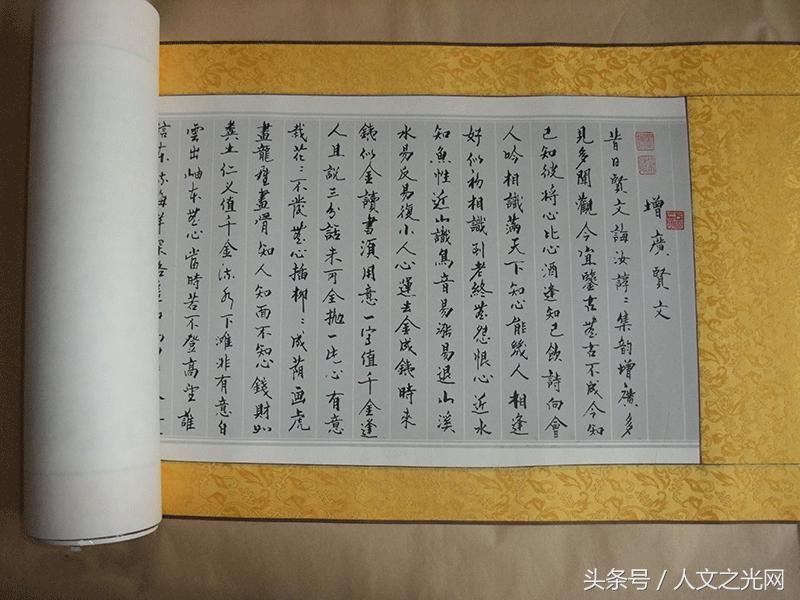 增廣賢文
昔日賢文誨汝諄々集韵增廣多
見多聞觀今宜鑒古無古不成今知
己知彼將心比心酒逢知己飲詩向會
人吟相識滿天下知心能幾人相逢
好似初相識到老終無怨恨心近水
知魚性近山識鳥音易漲易退山溪
水易反易復小人心運去金成鐵時來
鐵似金讀書須用意一字值千金逢
人且說三分話未可全抛一片心有意
栽花々不發無心插柳々成蔭画虎
畫龍難畫骨知人知面不知心錢財如
糞土仁义值千金流水下灘非有意白
雲出岫本無心當時若不登高望誰
信東流海洋深路遥
头条号 / 人文之光网